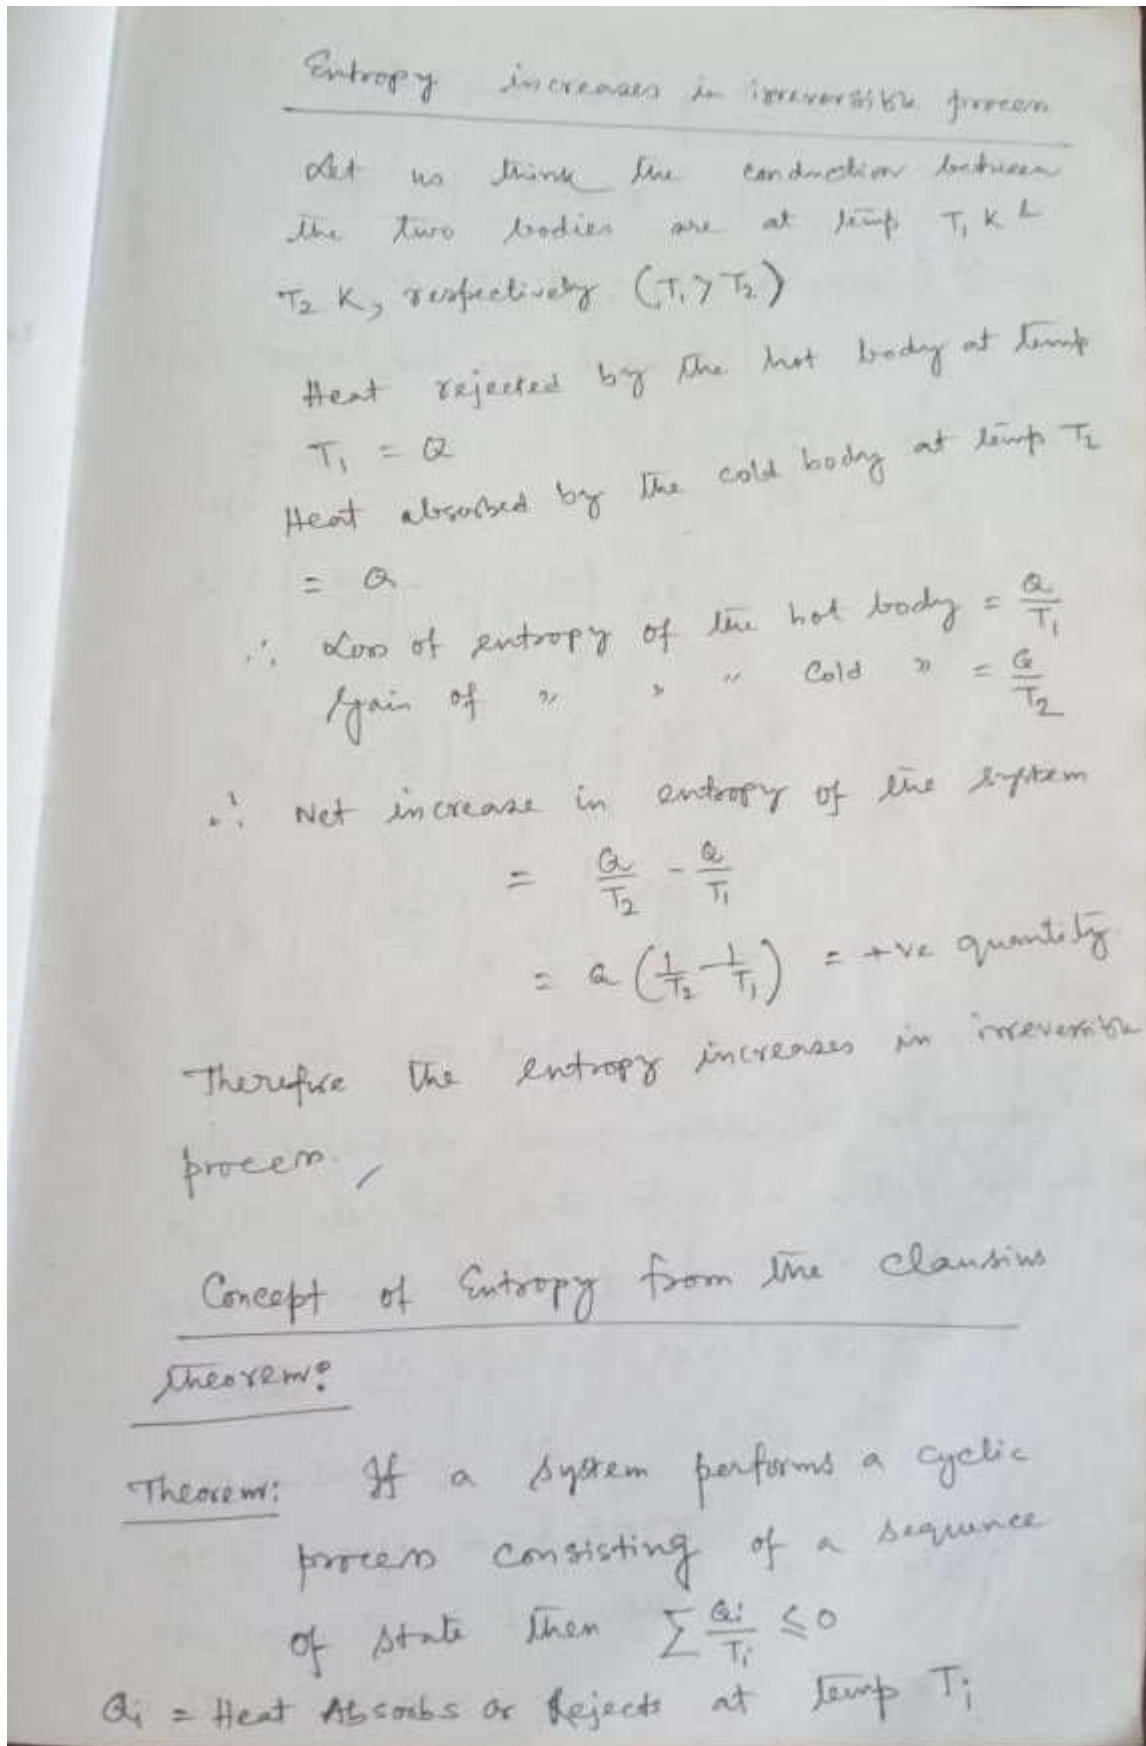 Entropy increases in irreversible process
Let us think the conduction between
the two bodies are at temp T₁ K &
T₂ K, respectively (T₁ > T₂)
Heat rejected by the hot body at temp
T₁ = Q
Heat absorbed by the cold body at temp T₂
= Q
∴ Loss of entropy of the hot body = Q/T₁
Gain of " " " Cold " = Q/T₂
∴ Net increase in entropy of the system
= Q/T₂ - Q/T₁
= Q (1/T₂ - 1/T₁) = +ve quantity
Therefore the entropy increases in irreversible
process
Concept of Entropy from the Clausius
theorem:
Theorem: If a system performs a cyclic
process consisting of a sequence
of state then Σ Qi/Ti ≤ 0
Qi = Heat Absorbs or Rejects at temp Ti